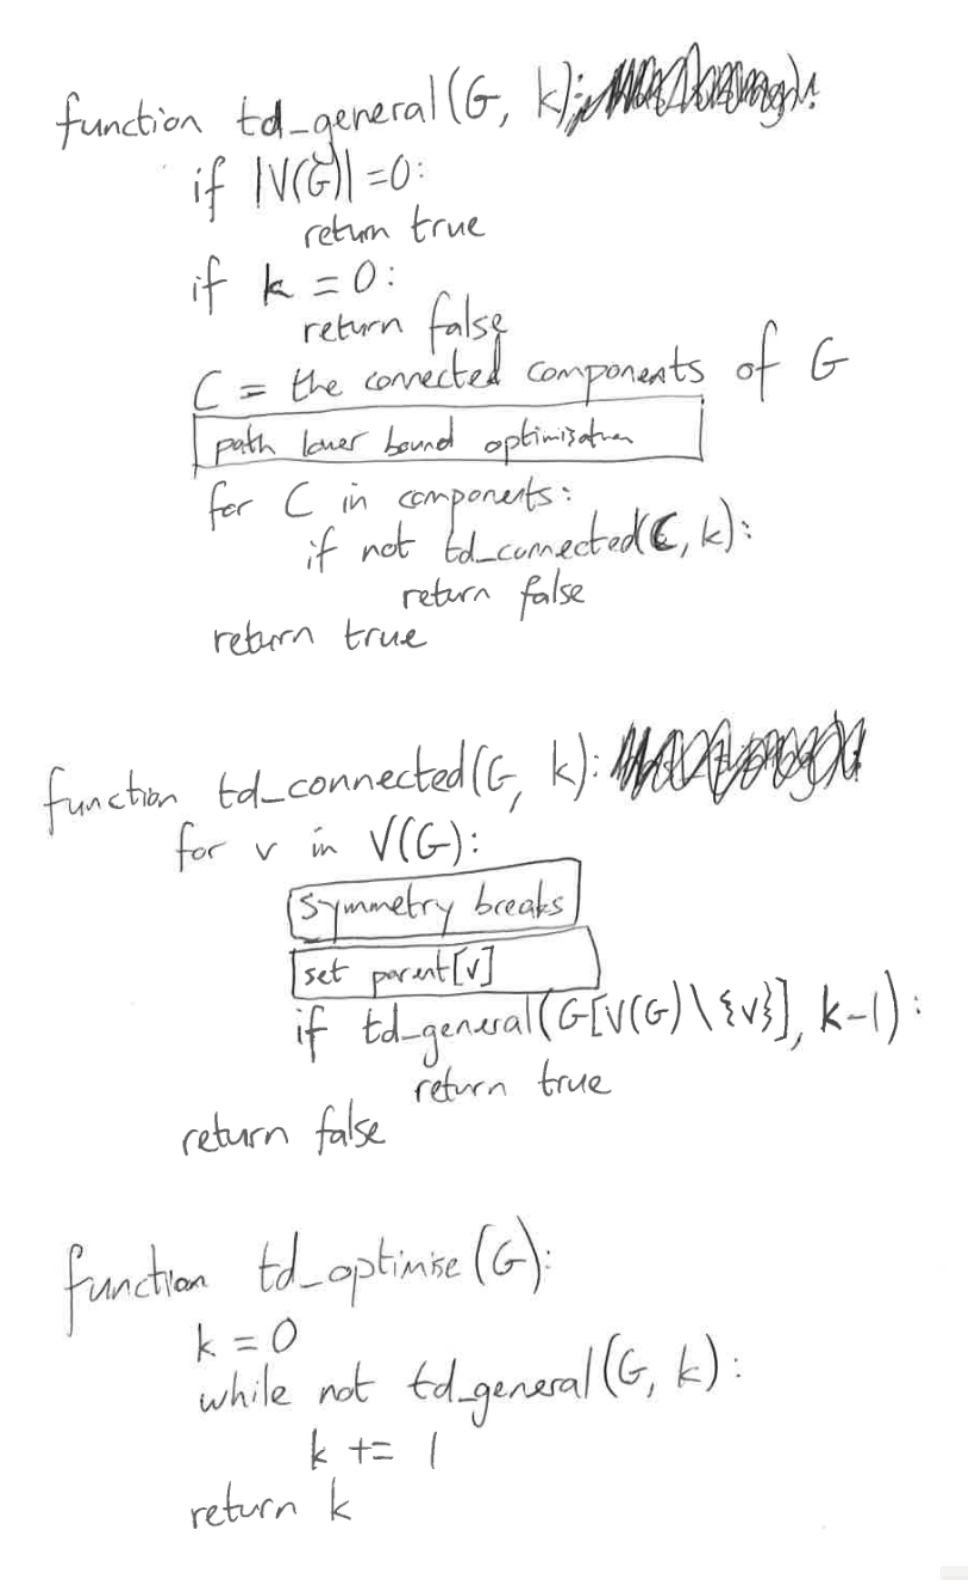 function td_general(G, k):
if |V(G)| = 0:
return true
if k = 0:
return false
C = the connected components of G
path lower bound optimisation
for C in components:
if not td_connected(C, k):
return false
return true
function td_connected(G, k):
for v in V(G):
symmetry breaks
set parent[v]
if td_general(G[V(G) \ {v}], k-1):
return true
return false
function td_optimise(G):
k = 0
while not td_general(G, k):
k += 1
return k